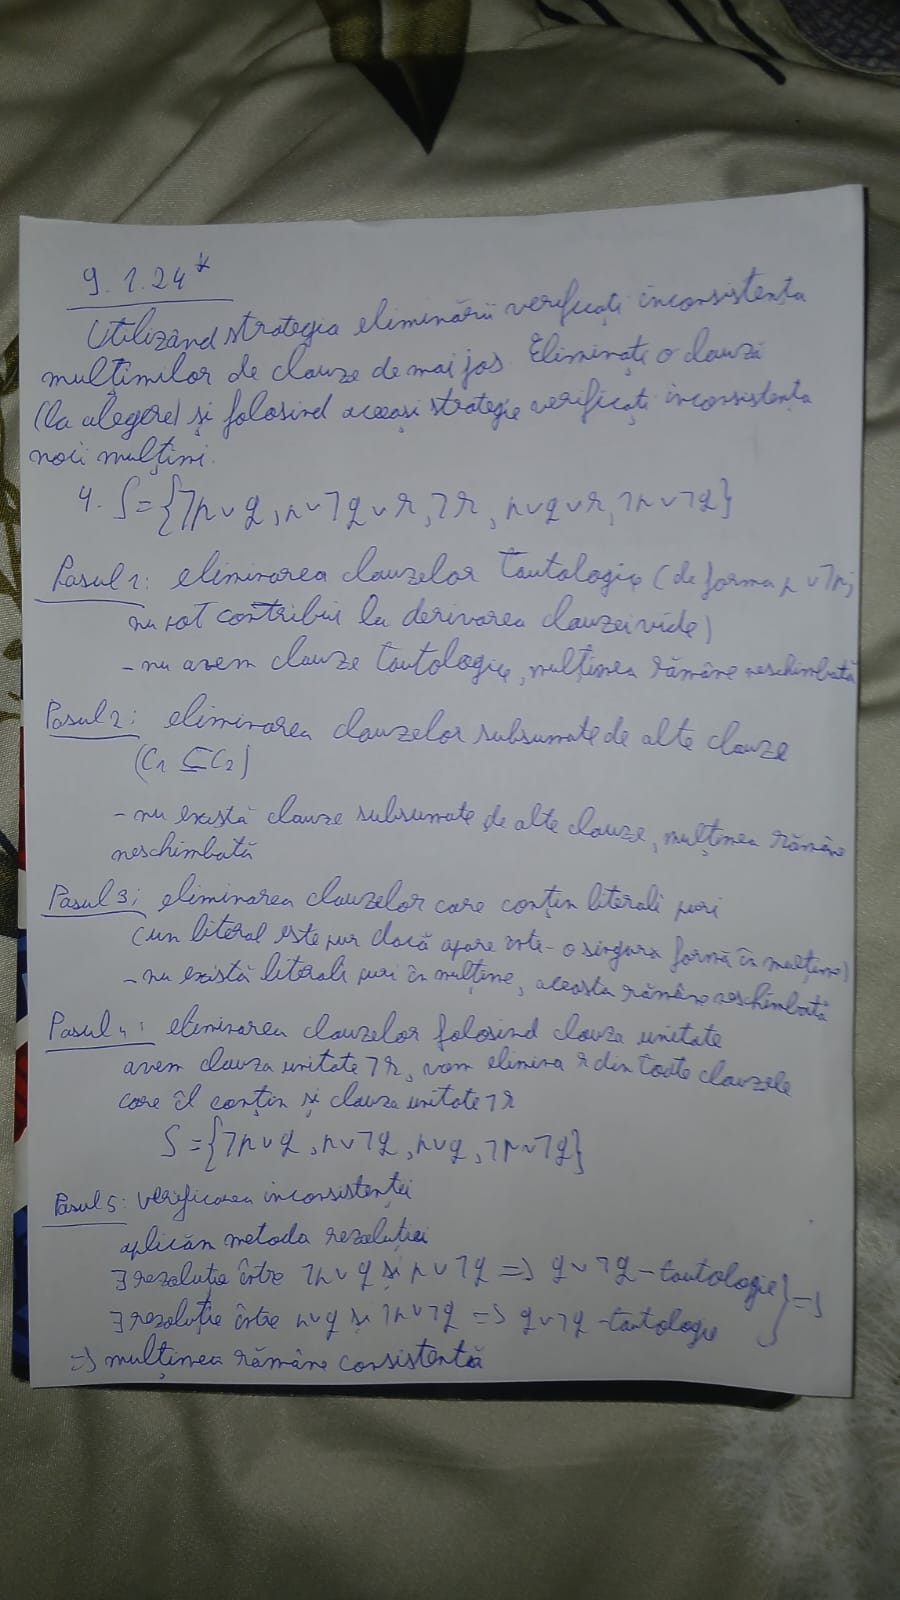 9.1.24*
Utilizând strategia eliminării verificați inconsistența
mulțimilor de clauze de mai jos. Eliminați o clauză
(la alegere) și folosind aceeași strategie verificați inconsistența
noii mulțimi.
4. S={¬p∨q, p∨¬q∨r, ¬r, p∨q∨r, ¬p∨¬q}
Pasul 1: eliminarea clauzelor tautologice (de forma p∨¬p;
nu pot contribui la derivarea clauzei vide)
- nu avem clauze tautologice, mulțimea rămâne neschimbată
Pasul 2: eliminarea clauzelor subsumate de alte clauze
(C₁ ⊆ C₂)
- nu există clauze subsumate de alte clauze, mulțimea rămâne
neschimbată
Pasul 3: eliminarea clauzelor care conțin literali puri
(un literal este pur dacă apare într-o singură formă în mulțime)
- nu există literali puri în mulțime, aceasta rămâne neschimbată
Pasul 4: eliminarea clauzelor folosind clauza unitate
avem clauza unitate ¬r, vom elimina r din toate clauzele
care îl conțin și clauza unitate ¬r
S={¬p∨q, p∨¬q, p∨q, ¬p∨¬q}
Pasul 5: verificarea inconsistenței
aplicăm metoda rezoluției
∃ rezoluție între ¬p∨q și p∨¬q => q∨¬q - tautologie } =>
∃ rezoluție între p∨q și ¬p∨¬q => q∨¬q - tautologie
=> mulțimea rămâne consistentă